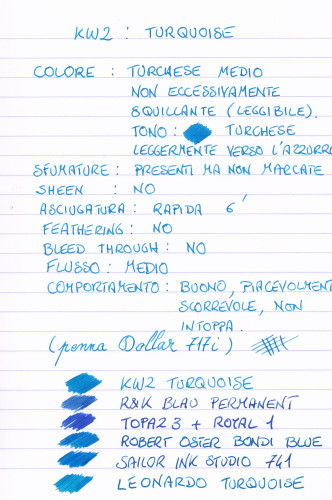 KWZ : TURQUOISE
COLORE : TURCHESE MEDIO
NON ECCESSIVAMENTE
SQUILLANTE (LEGGIBILE).
TONO : TURCHESE
LEGGERMENTE VERSO L'AZZURRO
SFUMATURE : PRESENTI MA NON MARCATE
SHEEN : NO
ASCIUGATURA : RAPIDA 6'
FEATHERING : NO
BLEED THROUGH : NO
FLUSSO : MEDIO
COMPORTAMENTO : BUONO, PIACEVOLMENT
SCORREVOLE, NON
INTOPPA.
(penna Dollar 717i)
KWZ TURQUOISE
R&K BLAU PERMANENT
TOPAZ 3 + ROYAL 1
ROBERT OSTER BONDI BLUE
SAILOR INK STUDIO 741
LEONARDO TURQUOISE